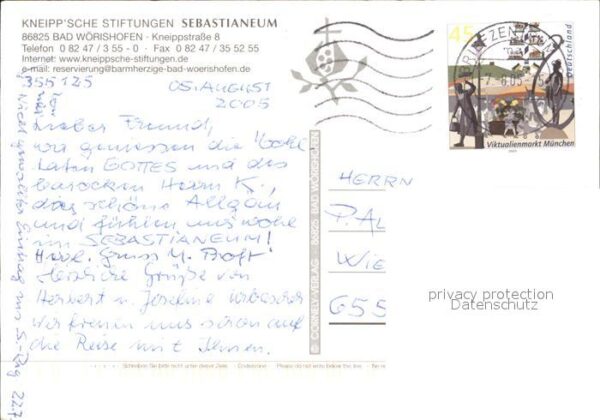 KNEIPP'SCHE STIFTUNGEN SEBASTIANEUM
86825 BAD WÖRISHOFEN · Kneippstraße 8
Telefon 0 82 47 / 3 55 - 0 · Fax 0 82 47 / 35 52 55
Internet: www.kneippsche-stiftungen.de
e-mail: reservierung@barmherzige-bad-woerishofen.de
355125
05. AUGUST
2005
Lieber Freund,
wir genießen die Wohl
taten GOTTES und des
barocken Herrn K.,
das schöne Allgäu
und fühlen uns wohl
im SEBASTIANEUM!
Herzl. Gruss
Herzliche Grüße von
Herbert u.
Wir freuen uns schon auf
die Reise mit Ihnen.
45
Deutschland
BRIEFZENTRUM
Viktualienmarkt München
HERRN
P. AL
WIE
655
privacy protection
Datenschutz
© CORNELY-VERLAG · 86825 BAD WÖRISHOFEN
Schreiben Sie bitte nicht unter dieser Zeile
Please do not write below the line